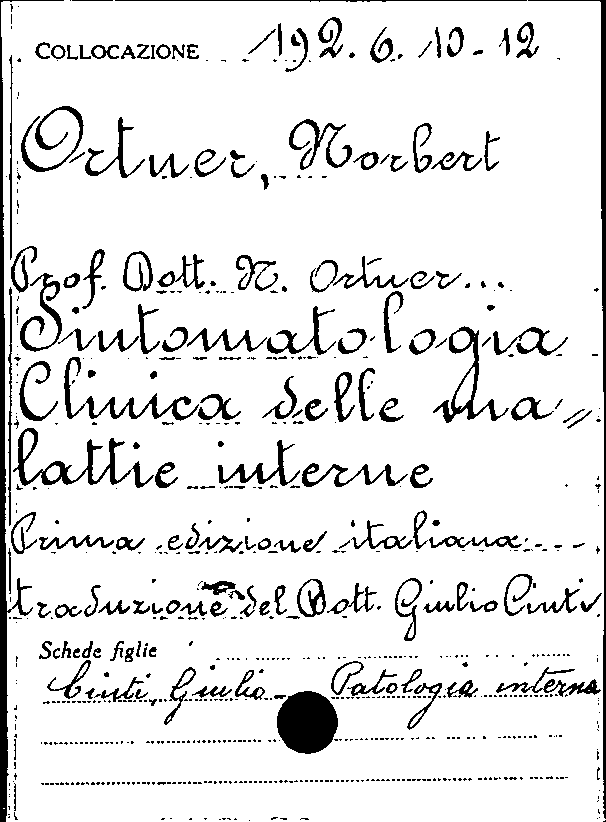 COLLOCAZIONE 192. 6. 10-12
Ortner, Norbert
Prof. Dott. N. Ortner...
Sintomatologia
Clinica delle ma=
lattie interne
Prima edizione italiana
traduzione del Dott. Giulio Cinti
Schede figlie
Cinti, Giulio - Patologia interna